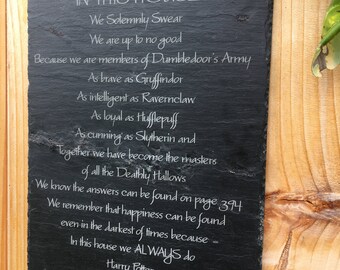 IN THIS HOUSE
We Solemnly Swear
We are up to no good
Because we are members of Dumbledoor's Army
As brave as Gryffindor
As intelligent as Ravernclaw
As loyal as Hufflepuff
As cunning as Slytherin and
Together we have become the masters
of all the Deathly Hallows
We know the answers can be found on page 394
We remember that happiness can be found
even in the darkest of times because
In this house we ALWAYS do
Harry Potter